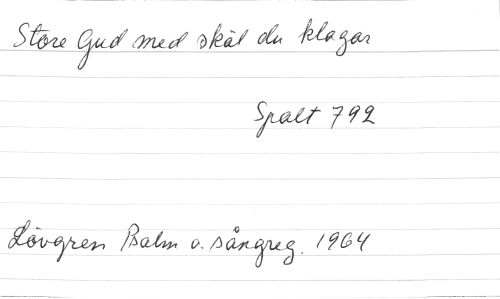 Store Gud med skäl du klagar
Spalt 792
Lövgren Psalm o. sångreg. 1964